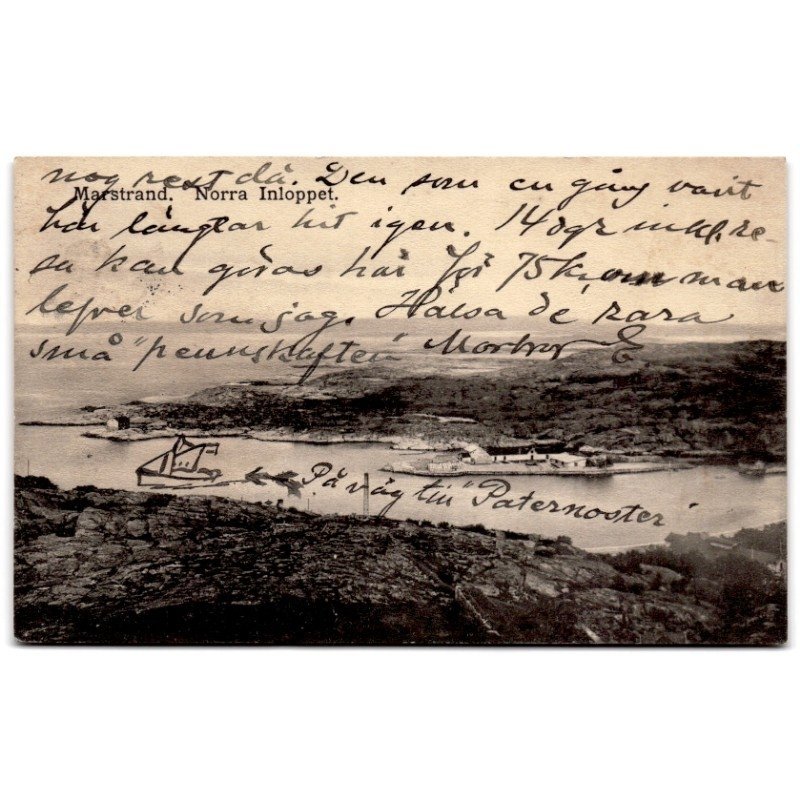 nog rest då. Den som en gång varit
Marstrand. Norra Inloppet.
här längtar hit igen. 14 dgr inkl. re-
sa kan göras här för 75 kr, om man
lefver som jag. Hälsa de rara
små "pennskaften"
På väg till "Paternoster"